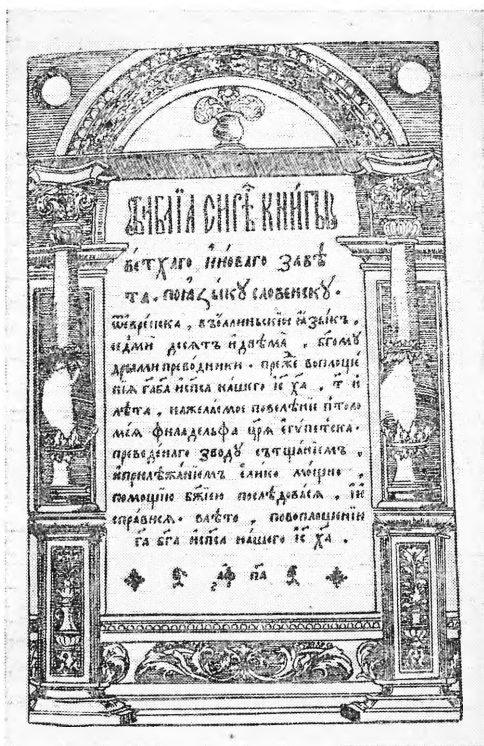 БИБЛЇА СИРѢ҃Ч КНИ́ГЫ
ВЕТХАГО И НОВАГО ЗАВѢ
ТА. ПОꙖЗЫКꙊ СЛОВЕНСКꙊ.
ѿеврейска, въеллиньскїи ꙗзыкъ,
седмї десѧтъ идвѣма, бг҃омꙋ
дрыми преводники. преже воплоще
нїѧ га҃ба҃ исп҃са нашего іс҃ ха҃, т҃ и
лѣта, нажелаемое повелѣнїе птоло
мѣѧ филаделъфа цр҃ѧ египетска.
преведенаго зводꙋ сътщанїемъ,
иприлѣжанїемъ елико мощно,
помощїю бж҃їею послѣдовасѧ, ӥи
справисѧ. влѣто, повоплощенїи
га҃ бг҃а исп҃са нашего іс҃ ха҃.
҂аф҃ па҃